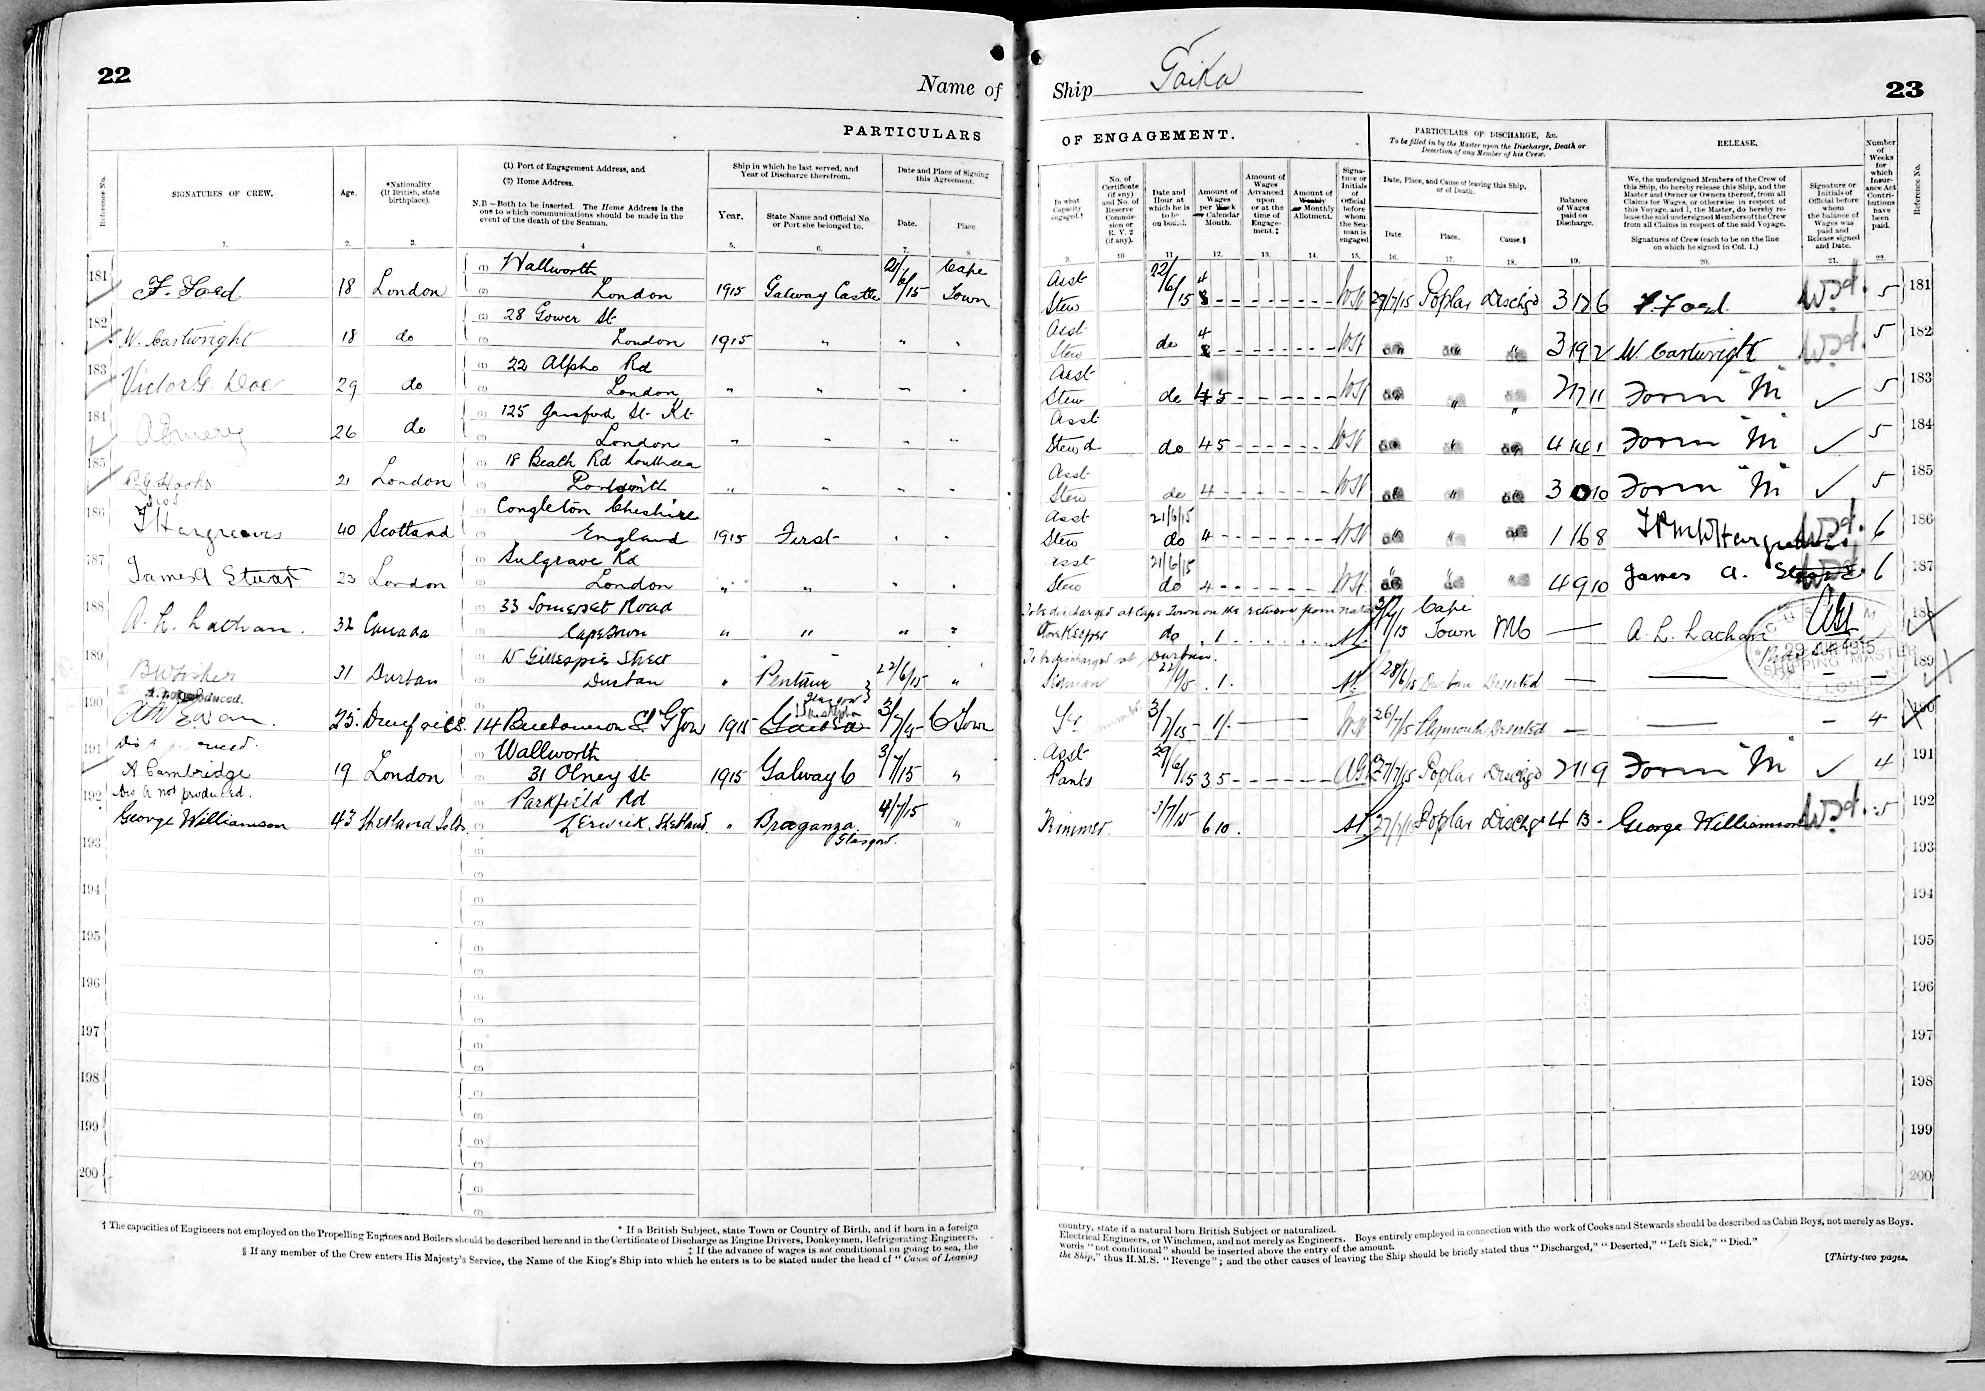 22
Name of
PARTICULARS
Reference No.
SIGNATURES OF CREW.
Age.
*Nationality (If British, state birthplace).
(1) Port of Engagement Address, and
(2) Home Address.
N.B.—Both to be inserted. The Home Address is the one to which communications should be made in the event of the death of the Seaman.
Ship in which he last served, and Year of Discharge therefrom.
Year.
State Name and Official No. or Port she belonged to.
Date and Place of Signing this Agreement.
Date.
Place.
1. 2. 3. 4 5. 6. 7. 8.
181 F. Ford 18 London (1) Wallworth (2) London 1915 Galway Castle 21/6/15 Cape Town
182 W. Cartwright 18 do 28 Gower St London 1915 " " "
183 Victor G. Doe 29 do 22 Alpha Rd London " " " "
184 26 do 125 St London " " " "
185 21 London 18 Rd Southsea " " " "
186 Hargreaves 40 Scotland Congleton Cheshire England 1915 First " "
187 James A Stuart 23 London Sulgrave Rd London " " " "
188 A. L. Lathan. 32 Canada 33 Somerset Road Capetown " " " "
189 31 Durban Gillespie Street Durban " 22/6/15 "
190 25. 14 1915 3/7/15 C Town
191 A Cambridge 19 London Wallworth 31 Olney St 1915 Galway C 3/7/15 "
Dis A not produced.
192 George Williamson 43 Shetland Islds. Parkfield Rd Lerwick, Shetland. " Braganza Glasgow. 4/7/15 "
193
194
195
196
197
198
199
200
† The capacities of Engineers not employed on the Propelling Engines and Boilers should be described here and in the Certificate of Discharge as Engine Drivers, Donkeymen, Refrigerating Engineers,
* If a British Subject, state Town or Country of Birth, and if born in a foreign
‡ If the advance of wages is not conditional on going to sea, the
§ If any member of the Crew enters His Majesty's Service, the Name of the King's Ship into which he enters is to be stated under the head of "Cause of Leaving
Ship Gaika
23
OF ENGAGEMENT.
PARTICULARS OF DISCHARGE, &c.
To be filled in by the Master upon the Discharge, Death or Desertion of any Member of his Crew.
RELEASE.
In what Capacity engaged.†
No. of Certificate (if any) and No. of Reserve Commission or R. V. 2 (if any).
Date and Hour at which he is to be on board.
Amount of Wages per Week or Calendar Month.
Amount of Wages Advanced upon or at the time of Engagement.‡
Amount of Weekly or Monthly Allotment.
Signature or Initials of Official before whom the Seaman is engaged
Date, Place, and Cause of leaving this Ship, or of Death.
Date.
Place.
Cause.§
Balance of Wages paid on Discharge.
We, the undersigned Members of the Crew of this Ship, do hereby release this Ship, and the Master and Owner or Owners thereof, from all Claims for Wages, or otherwise in respect of this Voyage, and I, the Master, do hereby release the said undersigned Members of the Crew from all Claims in respect of the said Voyage.
Signatures of Crew (each to be on the line on which he signed in Col. 1.)
Signature or Initials of Official before whom the balance of Wages was paid and Release signed and Date.
Number of Weeks for which Insurance Act Contributions have been paid.
Reference No.
9. 10 11. 12. 13. 14. 15. 16. 17. 18. 19. 20. 21. 22.
Asst Stew 22/6/15 4 27/7/15 Poplar Dischgd 3 17 6 F. Ford 5 181
Asst Stew do 4 " " " 3 19 2 W Cartwright 5 182
Asst Stew do 4 5 " " 2 17 11 Form "M" ✓ 5 183
Asst Stewd do 4 5 " 4 14 1 Form "M" ✓ 5 184
Asst Stew do 4 " 3 0 10 Form "M" ✓ 5 185
Asst Stew 21/6/15 do 4 1 16 8 Hargreaves 6 186
Asst Stew 21/6/15 do 4 4 9 10 James A. Stuart 6 187
To be discharged at Cape Town on the return from Natal
Storekeeper do 1 Cape Town — A. L. Lathan 188
To be discharged at Durban.
Seaman 22/6/15 1. 28/6/15 Durban Deserted — — — 189
3/7/15 1/- 26/7/15 Plymouth Deserted — — — 4 190
Asst Pants 29/6/15 3 5 27/7/15 Poplar Dischgd 2 11 9 Form "M" ✓ 4 191
Trimmer. 3/7/15 6 10. 27/7/15 Poplar Dischgd 4 13 - George Williamson 5 192
29 1915
SHIPPING MASTER
193
194
195
196
197
198
199
200
country, state if a natural born British Subject or naturalized.
Electrical Engineers, or Winchmen, and not merely as Engineers. Boys entirely employed in connection with the work of Cooks and Stewards should be described as Cabin Boys, not merely as Boys.
words "not conditional" should be inserted above the entry of the amount.
the Ship," thus H.M.S. "Revenge"; and the other causes of leaving the Ship should be briefly stated thus "Discharged," "Deserted," "Left Sick," "Died."
[Thirty-two pages.